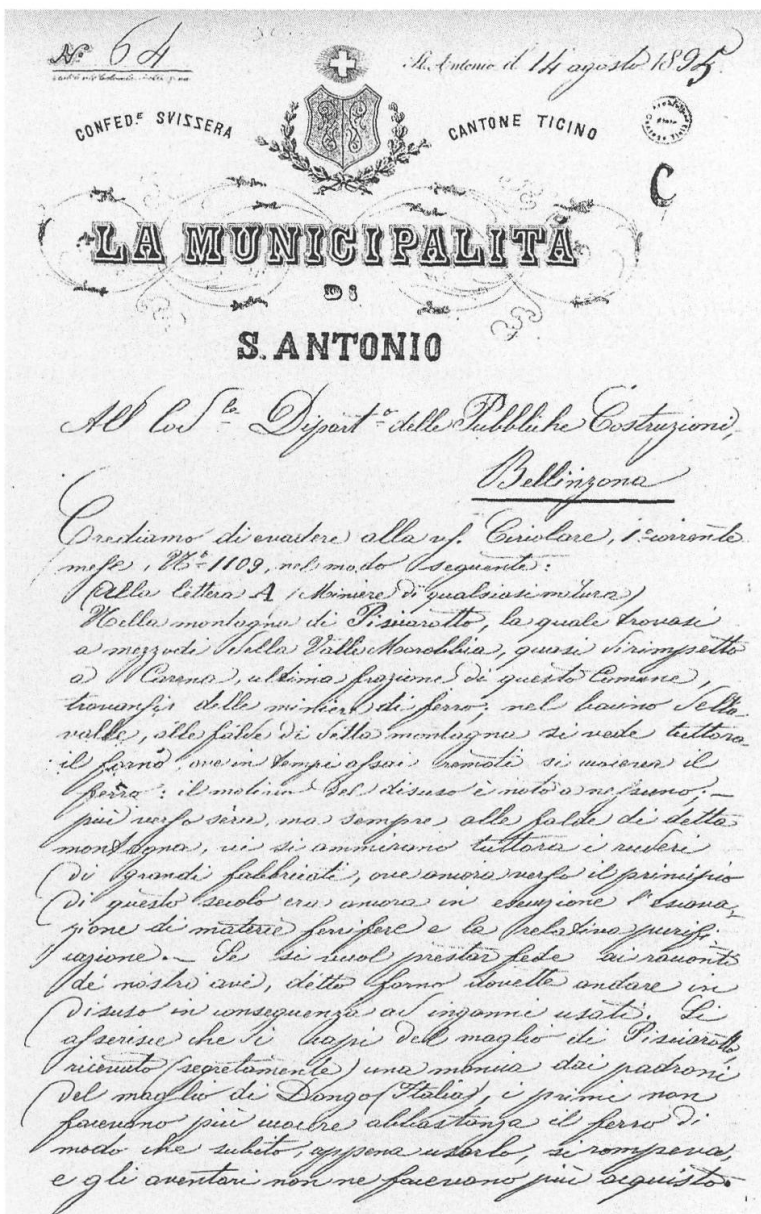 N.º 64
St. Antonio il 14 agosto 1895
CONFED.ᴱ SVIZZERA
CANTONE TICINO
C
LA MUNICIPALITÀ
DI
S. ANTONIO
All Lod.le Dipart.o delle Pubbliche Costruzioni,
Bellinzona
Crediamo di evadere alla vs. Circolare, 1º corrente
mese, Nº 1109, nel modo seguente:
(Alla lettera A (Miniere di qualsiasi natura)
Nella montagna di Pisciarotto, la quale trovasi
a mezzodì della Valle Morobbia, quasi dirimpetto
a Carena, ultima frazione di questo Comune,
trovansi delle miniere di ferro; nel bacino della
valle, alle falde di detta montagna si vede tuttora
il forno ove in tempi assai remoti si cuoceva il
ferro: il motivo del disuso è noto a nessuno; —
più verso sera, ma sempre alle falde di detta
montagna, vi si ammirano tuttora i ruderi
di grandi fabbricati, ove ancora verso il principio
di questo secolo era ancora in esecuzione l'escava-
zione di materie ferrifere e la relativa purifi-
cazione. — Se si vuol prestar fede ai racconti
de' nostri avi, detto forno dovette andare in
disuso in conseguenza ad inganni usati. Si
asserisce che i capi del maglio di Pisciarotto,
ricevuto (segretamente) una mancia dai padroni
del maglio di Dongo (Italia), i primi non
facevano più cuocere abbastanza il ferro di
modo che subito, appena usarlo, si rompeva,
e gli aventari non ne facevano più acquisto.